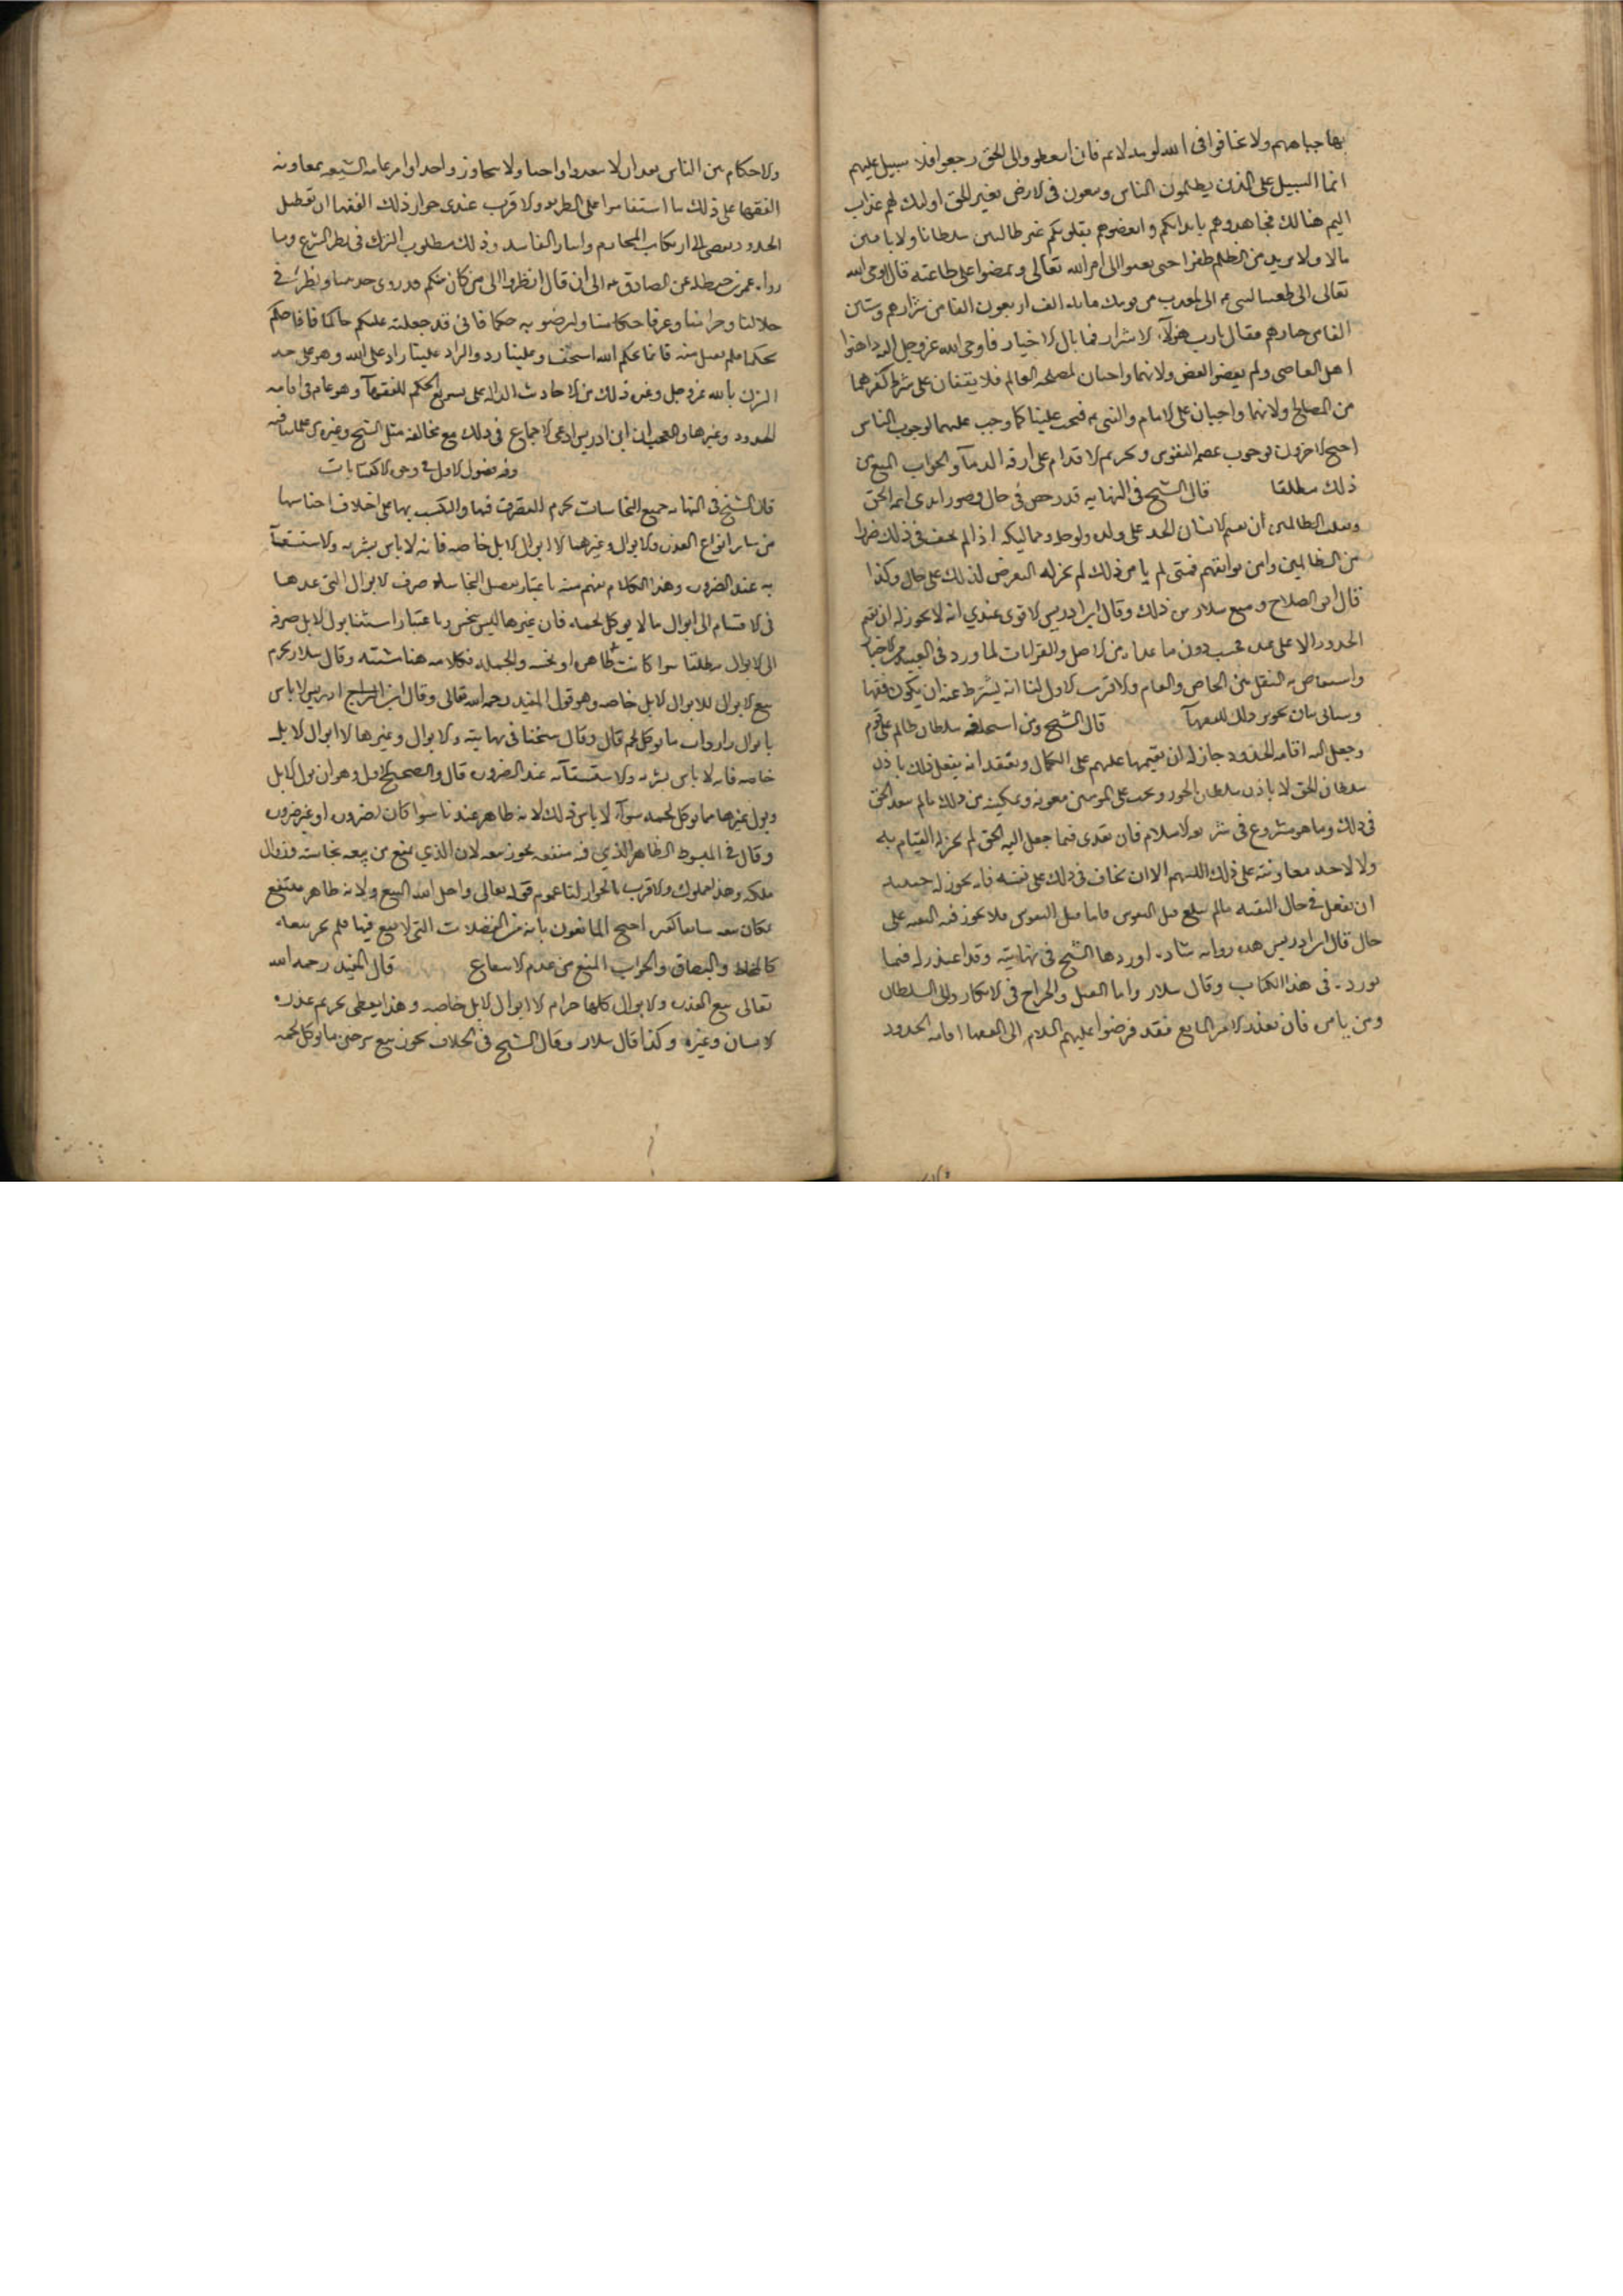 بها جباههم ولا تخافوا فى الله لومه لائم فان اتعظوا والى الحق رجعوا فلا سبيل عليهم
انما السبيل على الذين يظلمون الناس ويبغون فى الارض بغير الحق اولئك لهم عذاب
اليم هنالك فجاهدوهم بابدانكم وابغضوهم بقلوبكم غير طالبين سلطانا ولا باغين
مالا ولا مريدين بالظلم ظفرا حتى يفيئوا الى امر الله تعالى ويمضوا على طاعته قال اوحى الله
تعالى الى شعيب النبى انى معذب من قومك مائة الف اربعون الفا من شرارهم وستين
الفا من خيارهم فقال يارب هؤلاء الاشرار فما بال الاخيار فاوحى الله عزوجل اليه داهنوا
اهل المعاصى ولم يغضبوا لغضبى ولانهما واجبان لمصلحة العالم فلا يتفان على شرط كغيرهما
من المصالح ولانهما واجبان على الامام والنبى فيجب علينا كما وجب عليهما لوجوب التاس
احتج الاخرون بوجوب عصمة النفوس وتحريم الاقدام على اراقة الدماء والجواب المنع من
ذلك مطلقا قال الشيخ فى النهاية قد رخص فى حال قصور ايدى ائمة الحق
وتغلب الظالمين ان يقيم الانسان الحد على ولده واهله ومماليكه اذا لم يخف فى ذلك ضررا
من الظالمين وامن بوائقهم فمتى لم يامن ذلك لم يجز له التعرض لذلك على حال وكذا
قال ابن الصلاح ومنع سلار من ذلك وقال ابن ادريس الاقوى عندي انه لا يجوز له ان يقيم
الحدود الا على عبده فحسب دون ما عداه من الاهل والقرابات لما ورد فى العبد من الاخبار
واستفاض به النقل بين الخاص والعام والاقرب الاول لنا انه يشترط عنه ان يكون فقيها
وسياتى بيان تجويز ذلك للفقهاء قال الشيخ ومن استخلفه سلطان ظالم على قوم
وجعل اليه اقامة الحدود جاز له ان يقيمها عليهم على الكمال ويعتقد انه يفعل ذلك باذن
سلطان الحق لا باذن سلطان الجور ويجب على المومنين معونته وتمكينه من ذلك مالم يتعد الحق
فى ذلك وما هو مشروع فى شريعة الاسلام فان تعدى فيما جعل اليه الحق لم يجز له القيام به
ولا لاحد معاونته على ذلك اللهم الا ان يخاف فى ذلك على نفسه فانه يجوز له حينئذ
ان يفعل فى حال التقية مالم يبلغ قتل النفوس فاما قتل النفوس فلا يجوز فيه التقية على
حال قال ابن ادريس هذه رواية شاذة اوردها الشيخ فى نهايته وقد اعتذر له فيما
يورده فى هذا الكتاب وقال سلار واما القتل والجراح فى الانكار والى السلطان
ومن يامره فان تعذر الامر لمانع فقد فرضوا عليهم السلام الى الفقهاء اقامة الحدود
والاحكام بين الناس بعد ان لا يتعدوا واجبا ولا يتجاوزوا حدا وامر عامة الشيعة بمعاونة
الفقهاء على ذلك ما استقاموا على الطريقة والاقرب عندى جواز ذلك للفقهاء لنا ان تعطيل
الحدود يفضى الى ارتكاب المحارم وانتشار المفاسد وذلك مطلوب الترك فى نظر الشرع وما
رواه عمر بن حنظلة عن الصادق الى ان قال انظروا الى من كان منكم قد روى حديثنا ونظر فى
حلالنا وحرامنا وعرف احكامنا وليرضوا به حكما فانى قد جعلته عليكم حاكما فاذا حكم
بحكمنا فلم يقبل منه فانما بحكم الله استخف وعلينا رد والراد علينا راد على الله وهو على حد
الشرك بالله عزوجل وغير ذلك من الاحاديث الدالة على تسويغ الحكم للفقهاء وهو عام فى اقامة
الحدود وغيرها والعجب ان ابن ادريس ادعى الاجماع فى ذلك مع مخالفة مثل الشيخ وغيره من علمائنا فيه
وفيه فصول الاول فى وجوه الاكتسابات
قال الشيخ فى النهاية جميع النجاسات يحرم التصرف فيها والتكسب بها على اختلاف اجناسها
من سائر انواع العذرة والابوال وغيرهما الا ابوال الابل خاصة فانه لا باس بشربه والاستشفاء
به عند الضرورة وهذا الكلام يفهم منه باعتبار تفصيل النجاسات صرف الابوال التى عدها
فى الاقسام الى ابوال مالا يوكل لحمه فان غيرها ليس بنجس وباعتبار استثناء بول الابل صرفه
الى الابوال مطلقا سوا كانت طاهرة او نجسة وبالجملة فكلامه هنا مشتبه وقال سلار يحرم
بيع الابوال الا ابوال الابل خاصة وهو قول المفيد رحمه الله تعالى وقال ابن ادريس لا باس
بابوال وارواث ما يوكل لحمه قال وقال شيخنا فى نهايته والابوال وغيرها الا ابوال الابل
خاصة فانه لا باس بشربه والاستشفاء به عند الضرورة قال والصحيح الاول وهو ان بول الابل
وبول غيرها مما يوكل لحمه سواء لا باس بذلك لانه طاهر عندنا سوا كان لضرورة او غير ضرورة
وقال فى المبسوط الطاهر الذي فيه منفعة يجوز بيعه لان الذي منع من بيعه نجاسته وزوال
ملكه وهذا مملوك والاقرب الجواز لنا عموم قوله تعالى واحل الله البيع ولانه طاهر منتفع
فكان بيعه سائغا كغيره احتج المانعون بانه من الفضلات التى لا ينتفع فيها فلم يجز بيعه
كالمخاط والبصاق والجواب المنع من عدم الانتفاع قال المفيد رحمه الله
تعالى بيع العذرة والابوال كلها حرام الا ابوال الابل خاصه وهذا يعطى تحريم عذرة
الانسان وغيره وكذا قال سلار وقال الشيخ فى الخلاف يجوز بيع سرجين ما يوكل لحمه